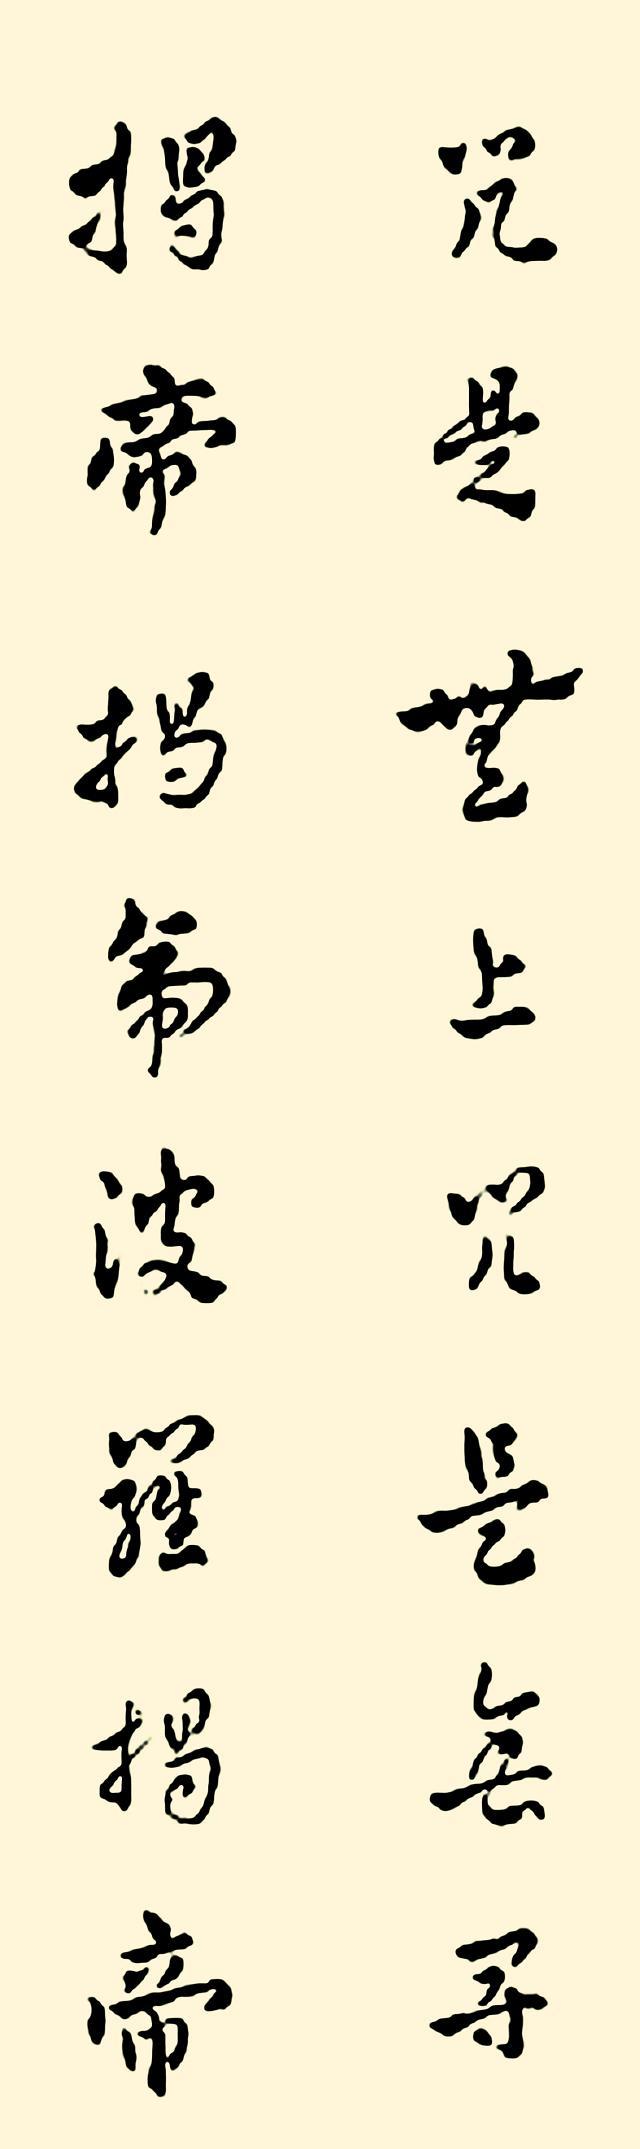 咒是無上咒是無等
揭帝揭帝波羅揭帝